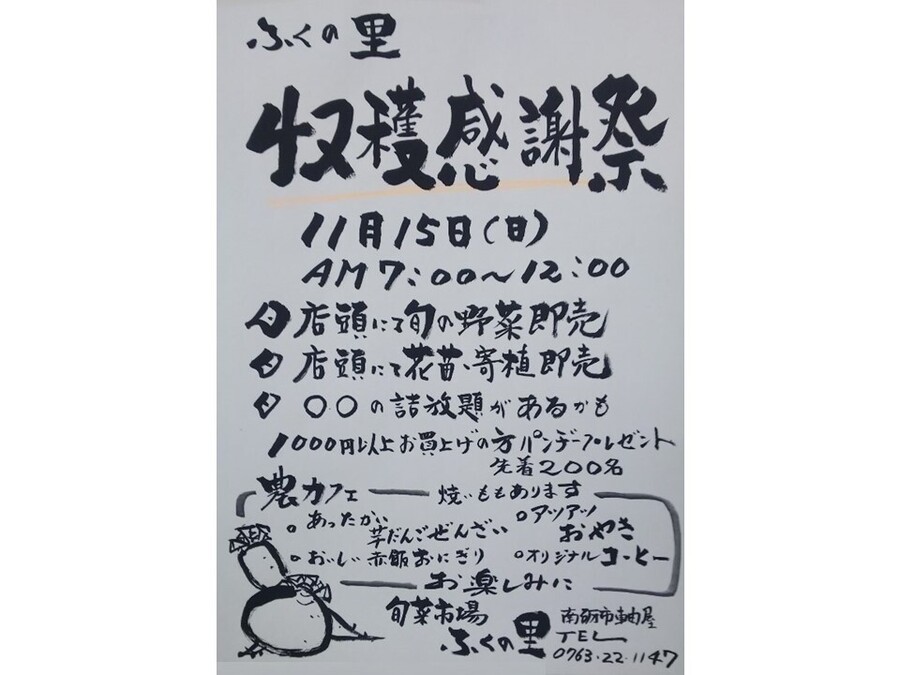 ふくの里
収穫感謝祭
11月15日(日)
AM7:00〜12:00
店頭にて旬の野菜即売
店頭にて花苗、寄植即売
〇〇の詰放題があるかも
1000円以上お買上げの方パンジープレゼント
先着200名
農カフェ 焼いももあります
。あったかい 芋だんごぜんざい
。アツアツ おやき
。おいしい赤飯おにぎり
。オリジナルコーヒー
お楽しみに
旬菜市場
ふくの里
南砺市
TEL
0763・22・1147